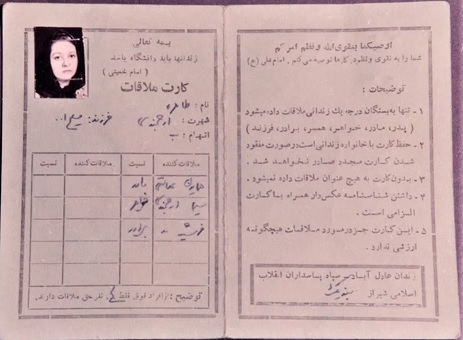 بسمه تعالی
زندانها باید دانشگاه باشد
( امام خمینی )
کارت ملاقات
نام : طاهره
شهرت : فرزند :
اتهـام : ب
ملاقات‌کننده نسبت ملاقات‌کننده نسبت
مادر
خواهر
برادر
توضیح : از افراد فوق فقط نفر حق ملاقات دارند.
اوصیکما بتقوی الله و نظم امرکم
شما را به تقوی و نظم در کارها توصیه می کنم . امام علی (ع)
توضیحات :
۱ - تنها به بستگان درجه یک زندانی ملاقات داده میشود
( پدر، مادر، خواهر، همسر، برادر، فرزند )
۲ - حفظ کارت با خانواده زندانی است در صورت مفقود
شدن کارت مجدد صادر نخواهد شد .
۳ - بدون کارت به هیچ عنوان ملاقات داده نمیشود .
۴ - داشتن شناسنامه عکس‌دار همراه با کارت
الزامی است .
۵ - این کارت جز در مورد ملاقات هیچگونه
ارزشی ندارد .
زندان عادل آباد سپاه پاسداران انقلاب
اسلامی شیراز